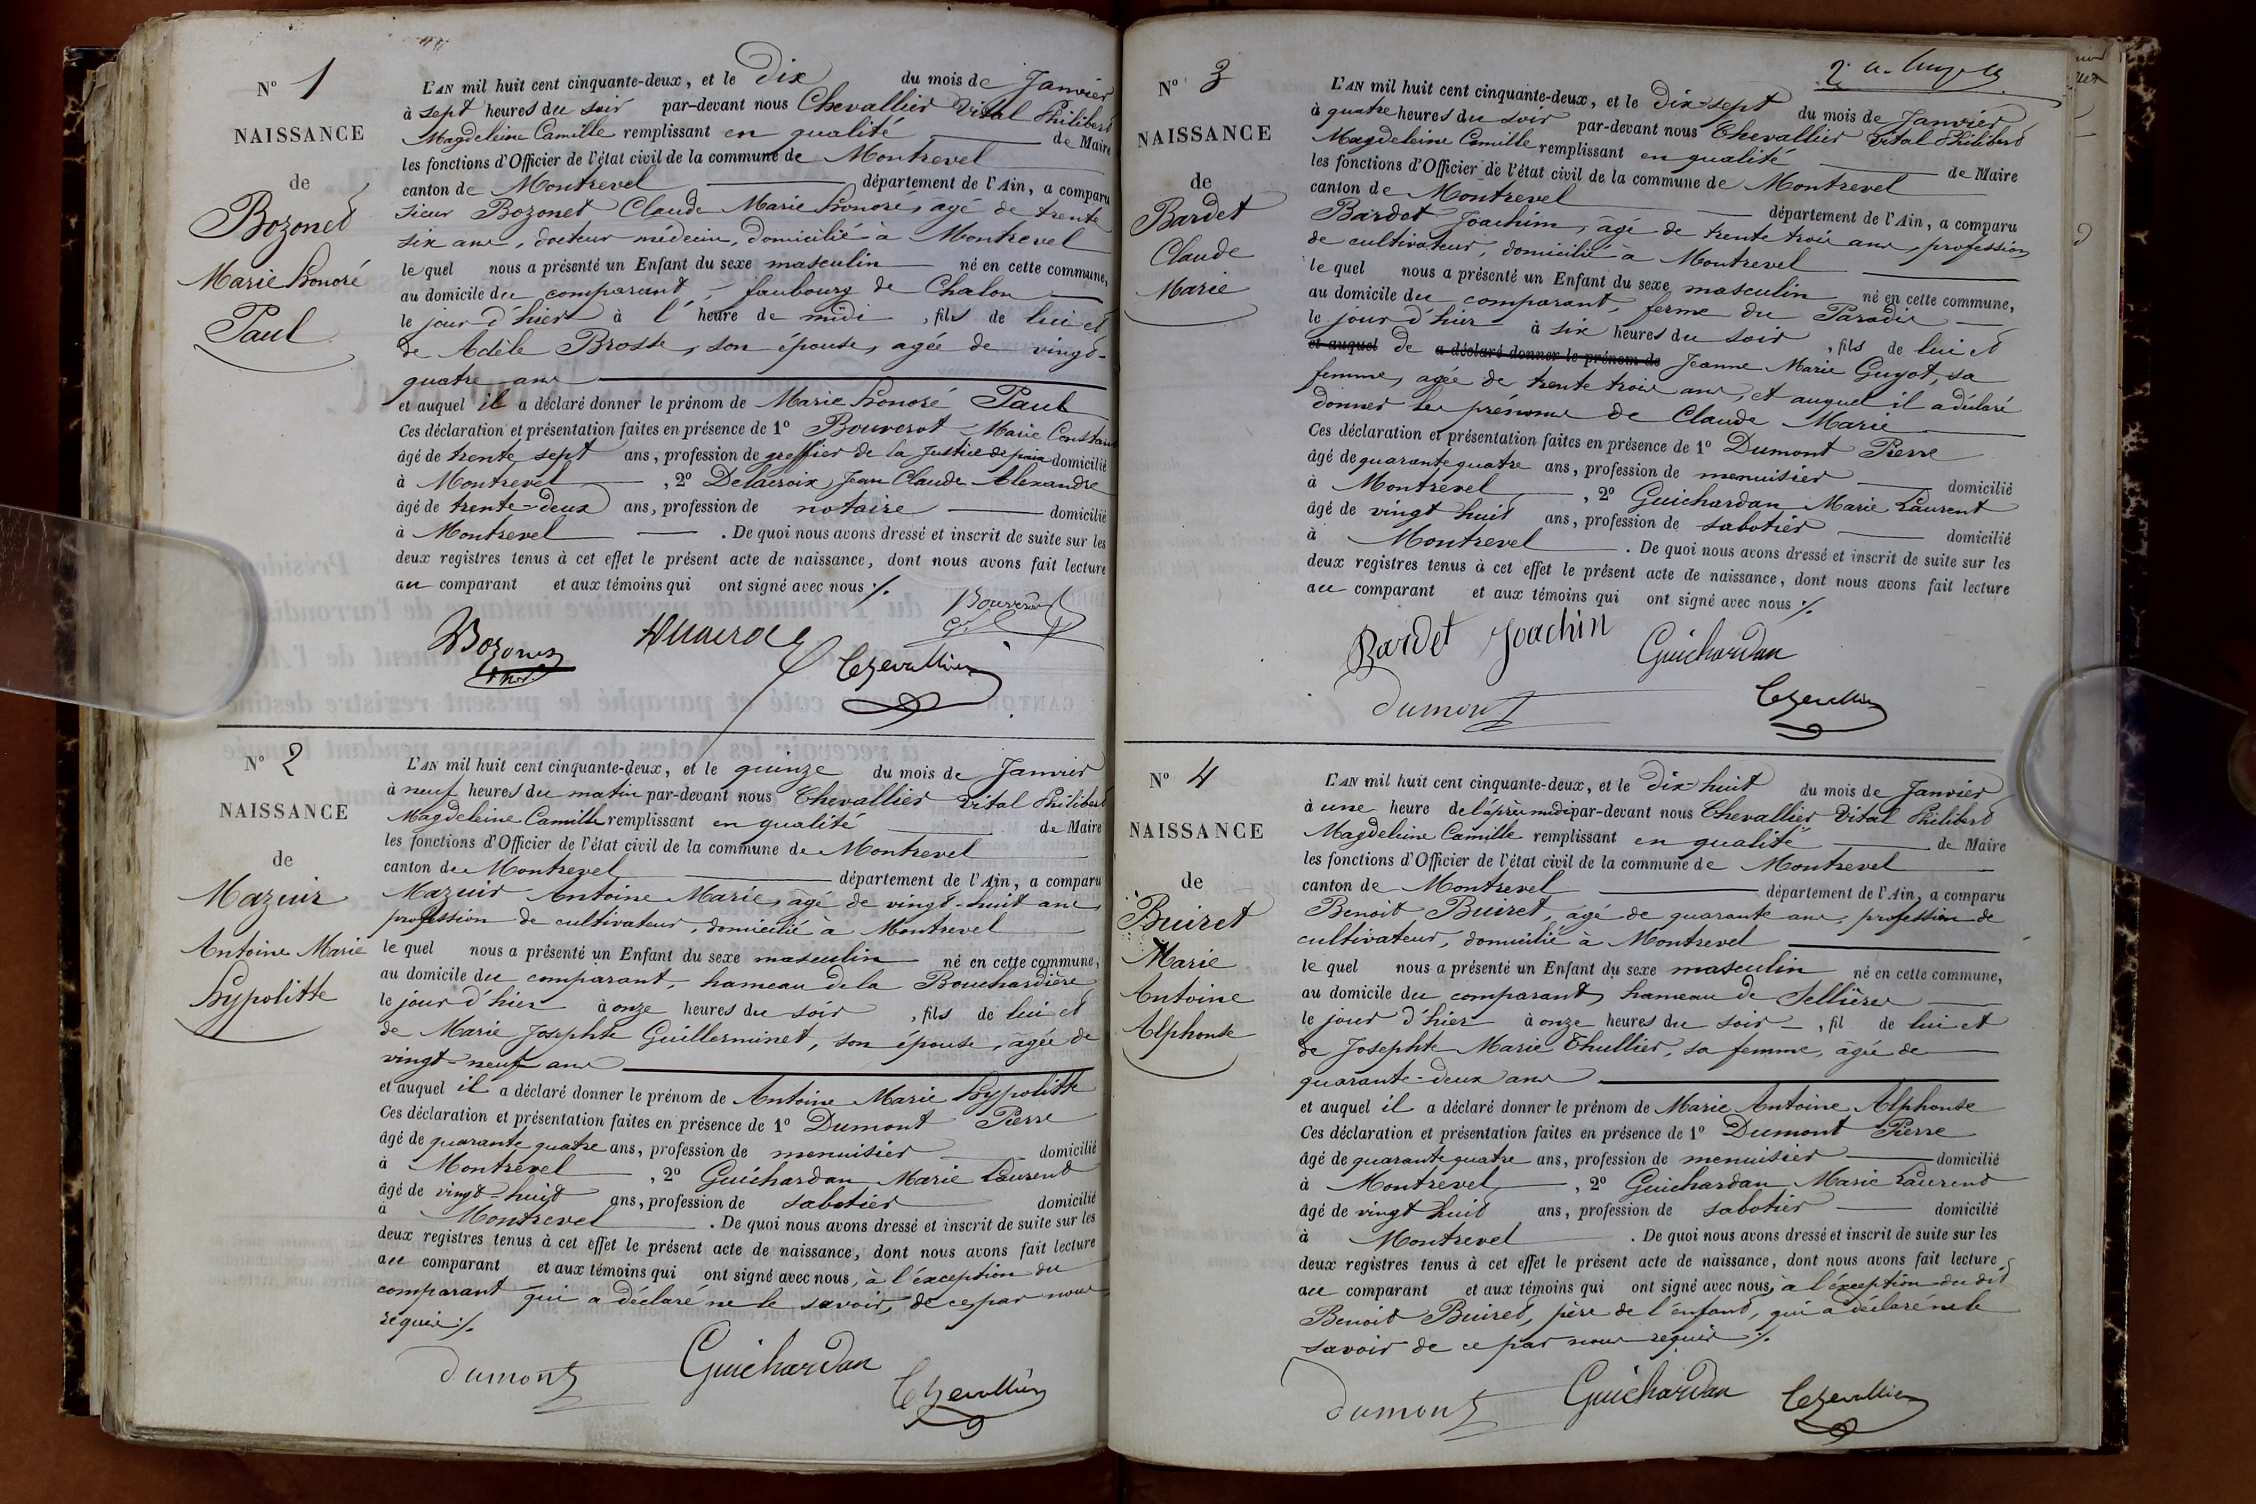 N° 1
NAISSANCE
de
Bozonet
Marie honoré
Paul
L'AN mil huit cent cinquante-deux, et le Dix du mois de Janvier
à sept heures du soir par-devant nous Chevallier Vital Philibert
Magdeleine Camille remplissant en qualité de Maire
les fonctions d'Officier de l'état civil de la commune de Montrevel
canton de Montrevel département de l'Ain, a comparu
sieur Bozonet Claude Marie honoré, agé de trente
six ans, docteur médecin, domicilié à Montrevel
le quel nous a présenté un Enfant du sexe masculin né en cette commune,
au domicile du comparant, faubourg de Chalon
le jour d'hier à l' heure de midi, fils de lui et
de Adèle Brosse, son épouse, agée de vingt-
quatre ans
et auquel il a déclaré donner le prénom de Marie honoré Paul
Ces déclaration et présentation faites en présence de 1° Bouverot Marie Constant
âgé de trente sept ans, profession de greffier de la justice de paix domicilié
à Montrevel, 2° Delacroix Jean Claude Alexandre
âgé de trente-deux ans, profession de notaire domicilié
à Montrevel. De quoi nous avons dressé et inscrit de suite sur les
deux registres tenus à cet effet le présent acte de naissance, dont nous avons fait lecture
au comparant et aux témoins qui ont signé avec nous ./.
Bouverot
Bozonet
Delacroix
Chevallier
N° 2
NAISSANCE
de
Mazuir
Antoine Marie
hypolitte
L'AN mil huit cent cinquante-deux, et le quinze du mois de Janvier
à neuf heures du matin par-devant nous Chevallier Vital Philibert
Magdeleine Camille remplissant en qualité de Maire
les fonctions d'Officier de l'état civil de la commune de Montrevel
canton de Montrevel département de l'Ain, a comparu
Mazuir Antoine Marie, agé de vingt-huit ans
profession de cultivateur, domicilié à Montrevel
le quel nous a présenté un Enfant du sexe masculin né en cette commune,
au domicile du comparant, hameau de la Bouchardière
le jour d'hier à onze heures du soir, fils de lui et
de Marie Josephte Guillerminet, son épouse, agée de
vingt-neuf ans
et auquel il a déclaré donner le prénom de Antoine Marie hypolitte
Ces déclaration et présentation faites en présence de 1° Dumont Pierre
âgé de quarante quatre ans, profession de menuisier domicilié
à Montrevel, 2° Guichardan Marie Laurent
âgé de vingt-huit ans, profession de sabotier domicilié
à Montrevel. De quoi nous avons dressé et inscrit de suite sur les
deux registres tenus à cet effet le présent acte de naissance, dont nous avons fait lecture
au comparant et aux témoins qui ont signé avec nous, à l'éxception du
comparant qui a déclaré ne le savoir, de ce par nous
requis ./.
Dumont
Guichardan
Chevallier
N° 3
NAISSANCE
de
Bardet
Claude
Marie
L'AN mil huit cent cinquante-deux, et le Dix-sept du mois de Janvier
à quatre heures du soir par-devant nous Chevallier Vital Philibert
Magdeleine Camille remplissant en qualité de Maire
les fonctions d'Officier de l'état civil de la commune de Montrevel
canton de Montrevel département de l'Ain, a comparu
Bardet Joachim, agé de trente trois ans, profession
de cultivateur, domicilié à Montrevel
le quel nous a présenté un Enfant du sexe masculin né en cette commune,
au domicile du comparant, ferme du Paradis
le jour d'hier à six heures du soir, fils de lui et
et auquel de a déclaré donner le prénom de Jeanne Marie Guyot, sa
femme, agée de trente trois ans, et auquel il a déclaré
donner les prénoms de Claude Marie
Ces déclaration et présentation faites en présence de 1° Dumont Pierre
âgé de quarante quatre ans, profession de menuisier domicilié
à Montrevel, 2° Guichardan Marie Laurent
âgé de vingt huit ans, profession de sabotier domicilié
à Montrevel. De quoi nous avons dressé et inscrit de suite sur les
deux registres tenus à cet effet le présent acte de naissance, dont nous avons fait lecture
au comparant et aux témoins qui ont signé avec nous ./.
Bardet Joachin
Guichardan
Dumont
Chevallier
N° 4
NAISSANCE
de
Buiret
Marie
Antoine
Alphonse
L'AN mil huit cent cinquante-deux, et le Dix-huit du mois de Janvier
à une heure de l'après midi par-devant nous Chevallier Vital Philibert
Magdeleine Camille remplissant en qualité de Maire
les fonctions d'Officier de l'état civil de la commune de Montrevel
canton de Montrevel département de l'Ain, a comparu
Benoit Buiret, agé de quarante ans, profession de
cultivateur, domicilié à Montrevel
le quel nous a présenté un Enfant du sexe masculin né en cette commune,
au domicile du comparant, hameau de Sellière
le jour d'hier à onze heures du soir, fil de lui et
de Josephte Marie Thullier, sa femme, agée de
quarante-deux ans
et auquel il a déclaré donner le prénom de Marie Antoine Alphonse
Ces déclaration et présentation faites en présence de 1° Dumont Pierre
âgé de quarante quatre ans, profession de menuisier domicilié
à Montrevel, 2° Guichardan Marie Laurent
âgé de vingt huit ans, profession de sabotier domicilié
à Montrevel. De quoi nous avons dressé et inscrit de suite sur les
deux registres tenus à cet effet le présent acte de naissance, dont nous avons fait lecture
au comparant et aux témoins qui ont signé avec nous, à l'éxception du dit
Benoit Buiret, père de l'enfant, qui a déclaré ne le
savoir de ce par nous requis ./.
Dumont
Guichardan
Chevallier